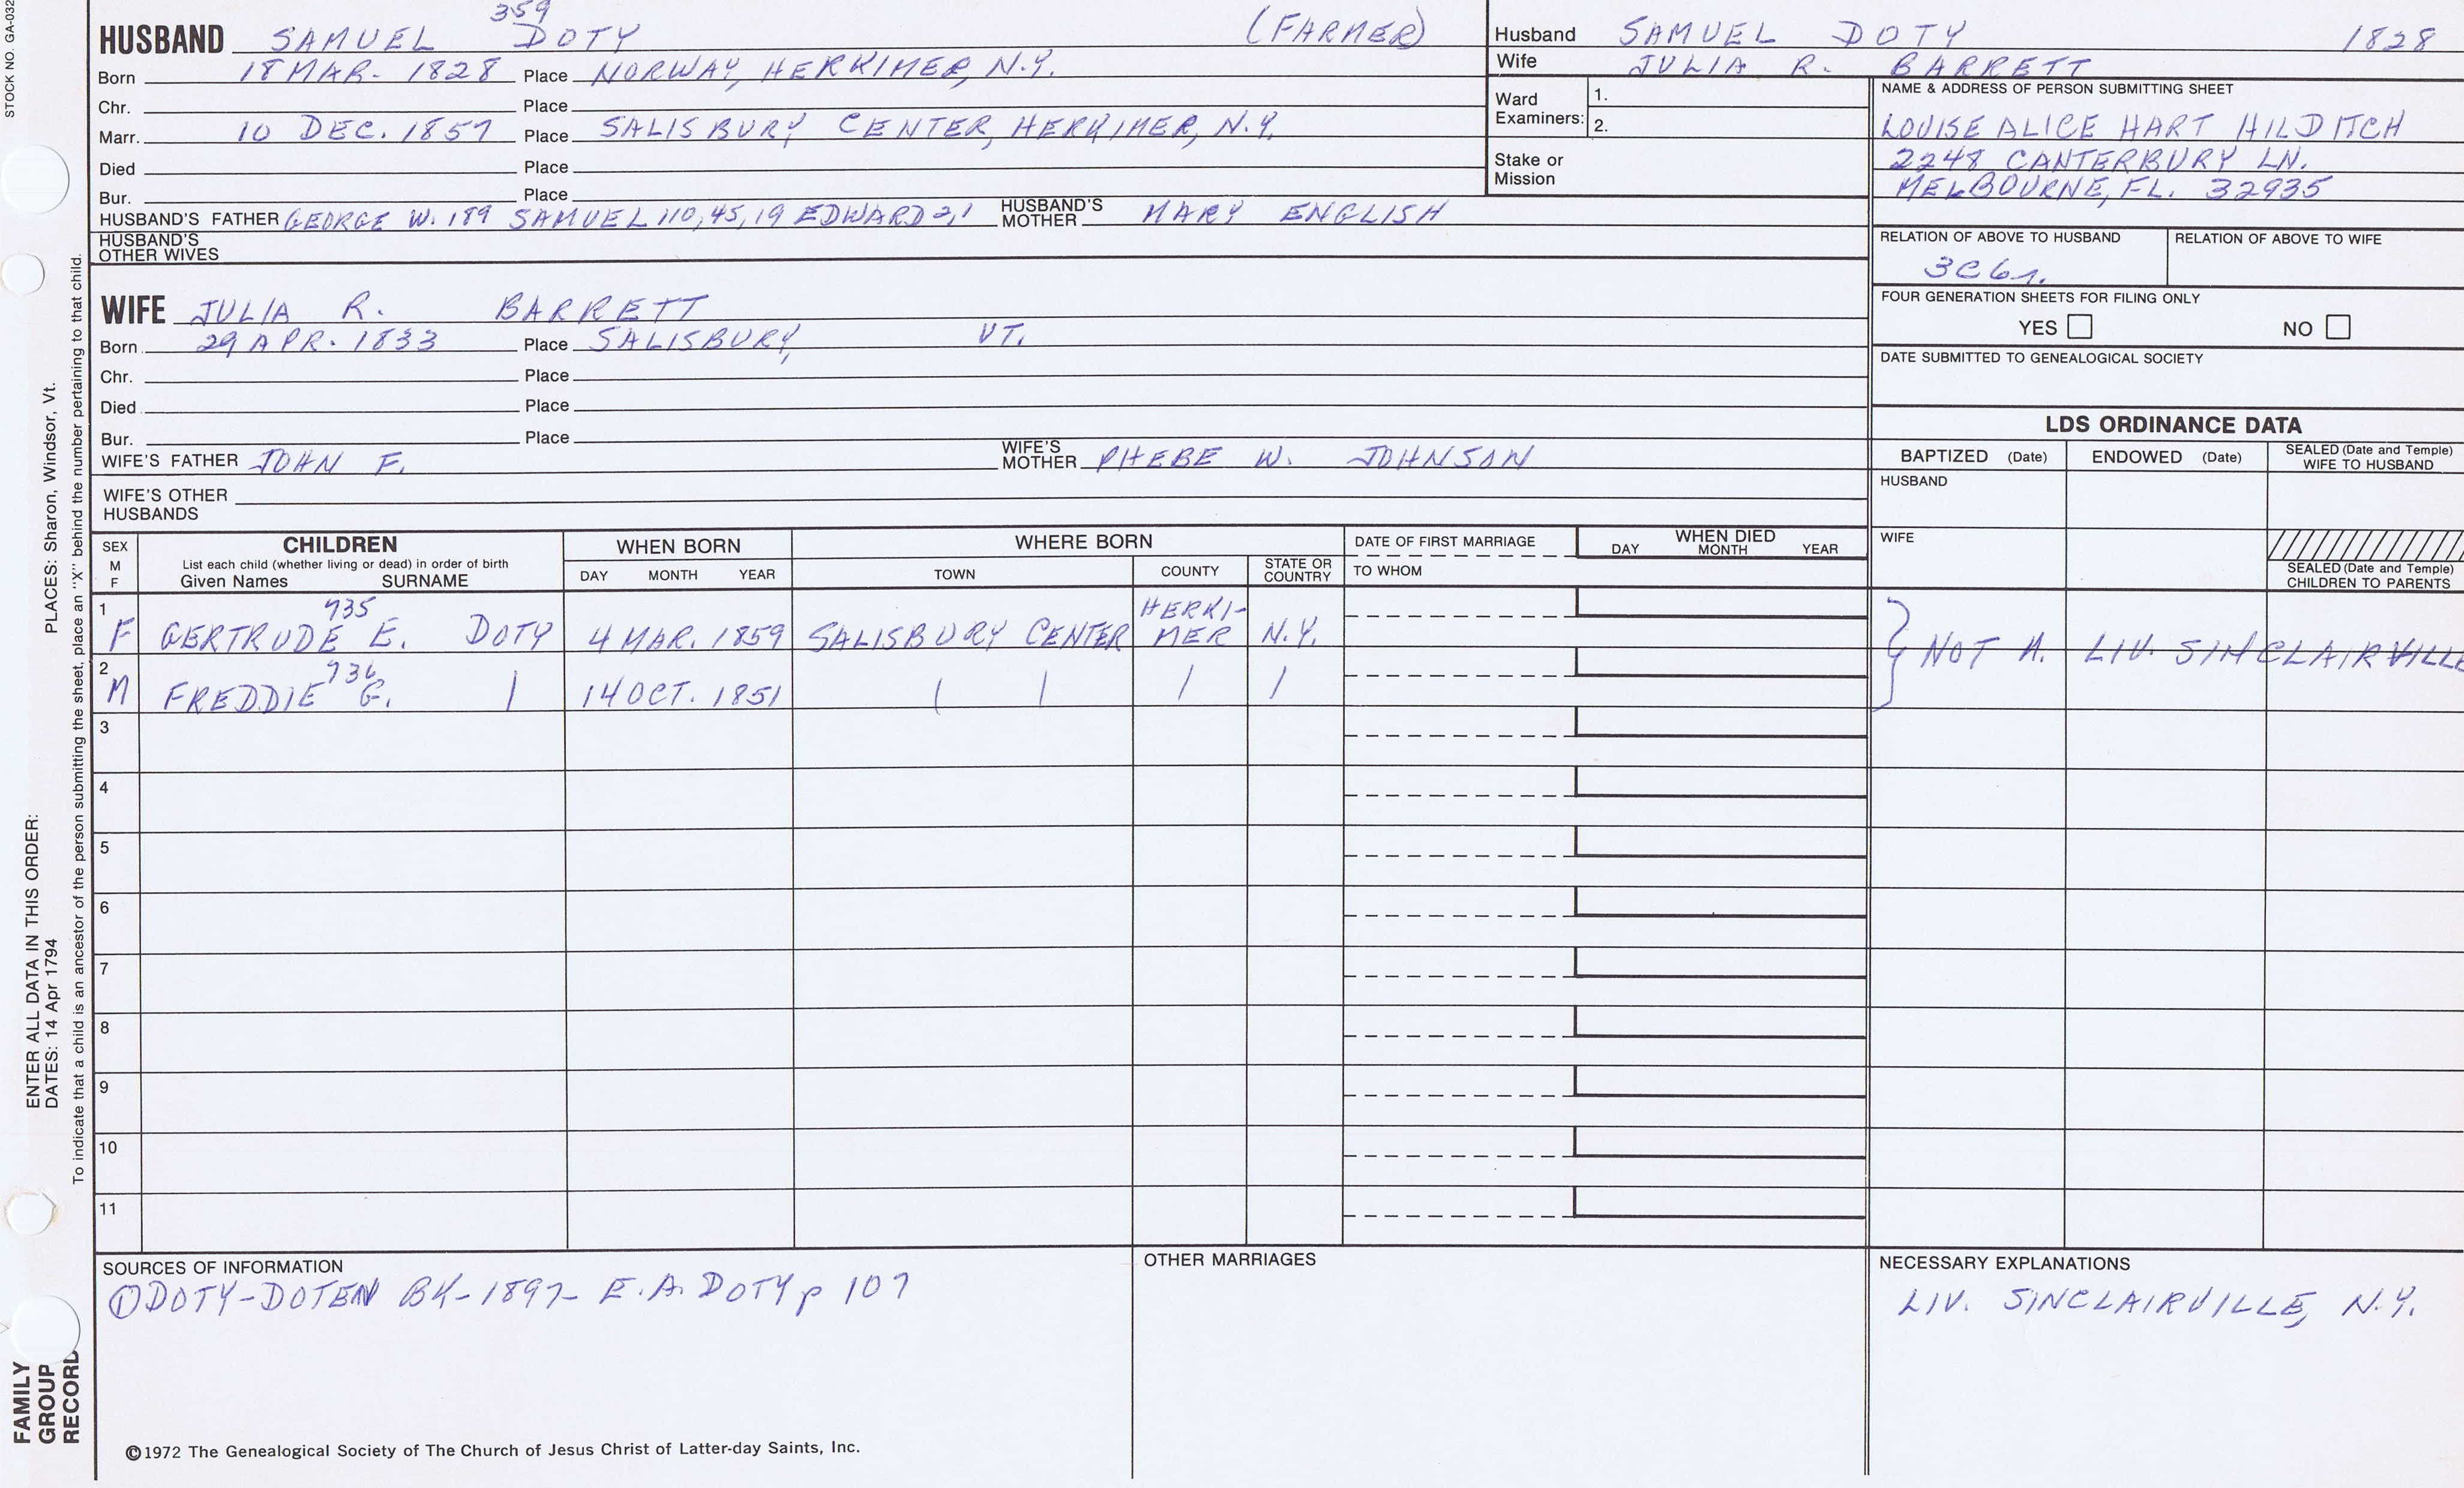 STOCK NO. GA-032
359
HUSBAND SAMUEL DOTY (FARMER)
Born 18 MAR. 1828 Place NORWAY, HERKIMER, N.Y.
Chr. Place
Marr. 10 DEC. 1857 Place SALISBURY CENTER, HERKIMER, N.Y.
Died Place
Bur. Place
HUSBAND'S FATHER GEORGE W. 189 SAMUEL 110, 45, 19 EDWARD 2, 1 HUSBAND'S MOTHER MARY ENGLISH
HUSBAND'S OTHER WIVES
Husband SAMUEL DOTY 1828
Wife JULIA R. BARRETT
Ward Examiners: 1.
2.
Stake or Mission
NAME & ADDRESS OF PERSON SUBMITTING SHEET
LOUISE ALICE HART HILDITCH
2248 CANTERBURY LN.
MELBOURNE, FL. 32935
RELATION OF ABOVE TO HUSBAND RELATION OF ABOVE TO WIFE
3C6r.
FOUR GENERATION SHEETS FOR FILING ONLY
YES NO
DATE SUBMITTED TO GENEALOGICAL SOCIETY
WIFE JULIA R. BARRETT
Born 29 APR. 1833 Place SALISBURY, VT.
Chr. Place
Died Place
Bur. Place
WIFE'S FATHER JOHN F. WIFE'S MOTHER PHEBE W. JOHNSON
WIFE'S OTHER HUSBANDS
LDS ORDINANCE DATA
BAPTIZED (Date) ENDOWED (Date) SEALED (Date and Temple) WIFE TO HUSBAND
HUSBAND
WIFE
SEALED (Date and Temple) CHILDREN TO PARENTS
SEX M F
CHILDREN
List each child (whether living or dead) in order of birth
Given Names SURNAME
WHEN BORN
DAY MONTH YEAR
WHERE BORN
TOWN COUNTY STATE OR COUNTRY
DATE OF FIRST MARRIAGE
TO WHOM
WHEN DIED
DAY MONTH YEAR
735
1 F GERTRUDE E. DOTY 4 MAR. 1859 SALISBURY CENTER HERKI-MER N.Y.
736
2 M FREDDIE G. 14 OCT. 1851
} NOT M. LIV. SINCLAIRVILLE
3
4
5
6
7
8
9
10
11
SOURCES OF INFORMATION
① DOTY-DOTEN BK-1897- E.A. DOTY p 107
OTHER MARRIAGES
NECESSARY EXPLANATIONS
LIV. SINCLAIRVILLE, N.Y.
©1972 The Genealogical Society of The Church of Jesus Christ of Latter-day Saints, Inc.
FAMILY
GROUP
RECORD
ENTER ALL DATA IN THIS ORDER:
DATES: 14 Apr 1794
PLACES: Sharon, Windsor, Vt.
To indicate that a child is an ancestor of the person submitting the sheet, place an "X" behind the number pertaining to that child.